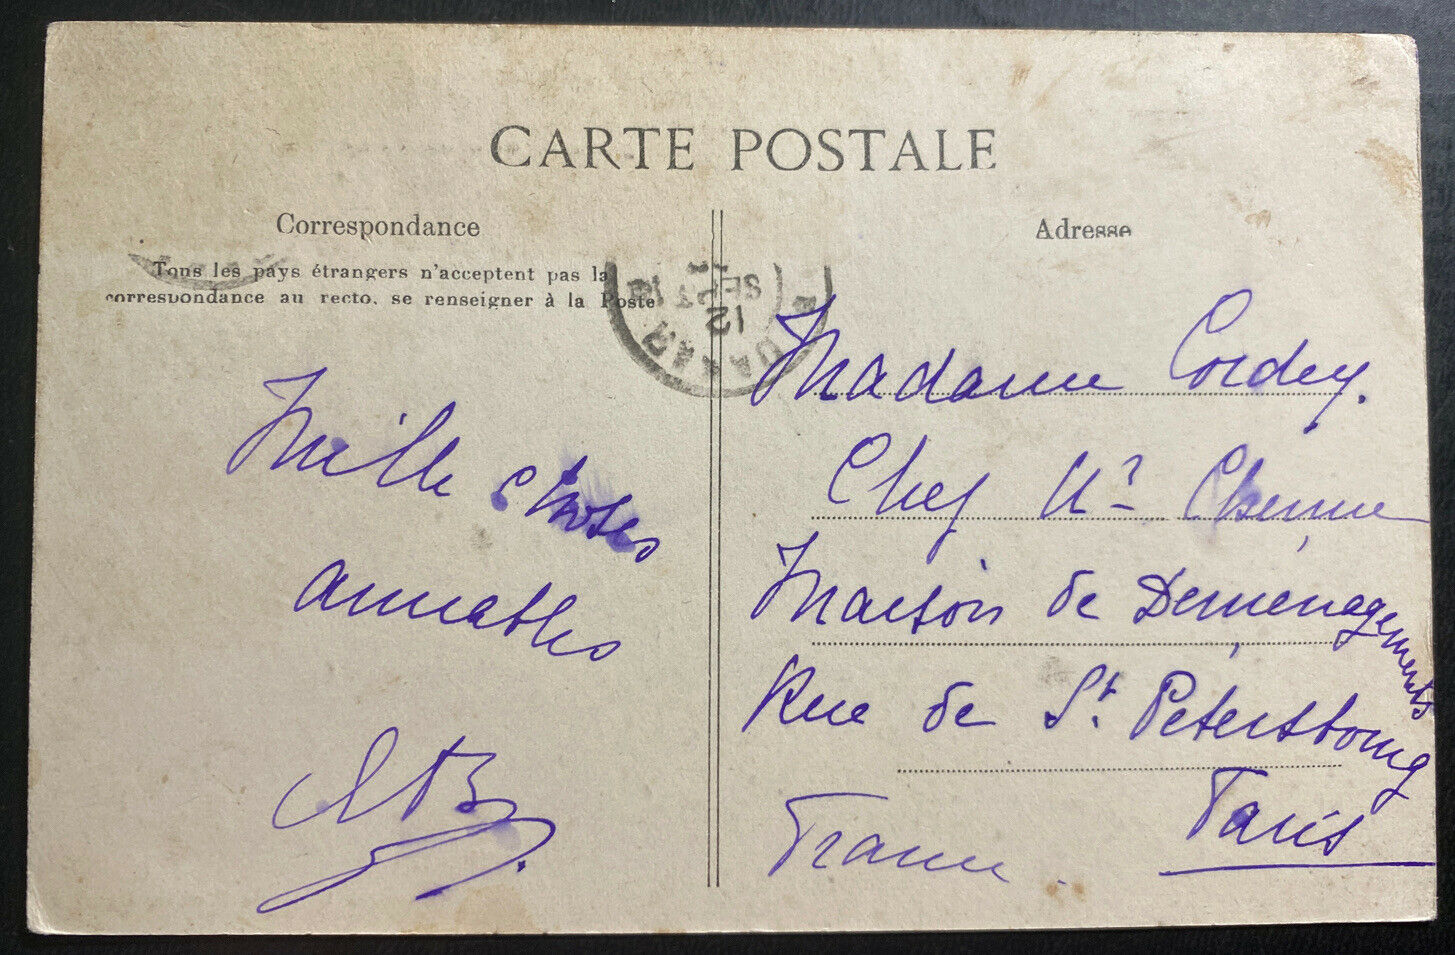 CARTE POSTALE
Correspondance
Tous les pays étrangers n'acceptent pas la
correspondance au recto, se renseigner à la Poste
Mille choses
aimables
Adresse
DAKAR
12
SEPT
Madame Cordey.
Chef Mr
Maison de Déménagements
Rue de St. Pétersbourg
Paris
France.